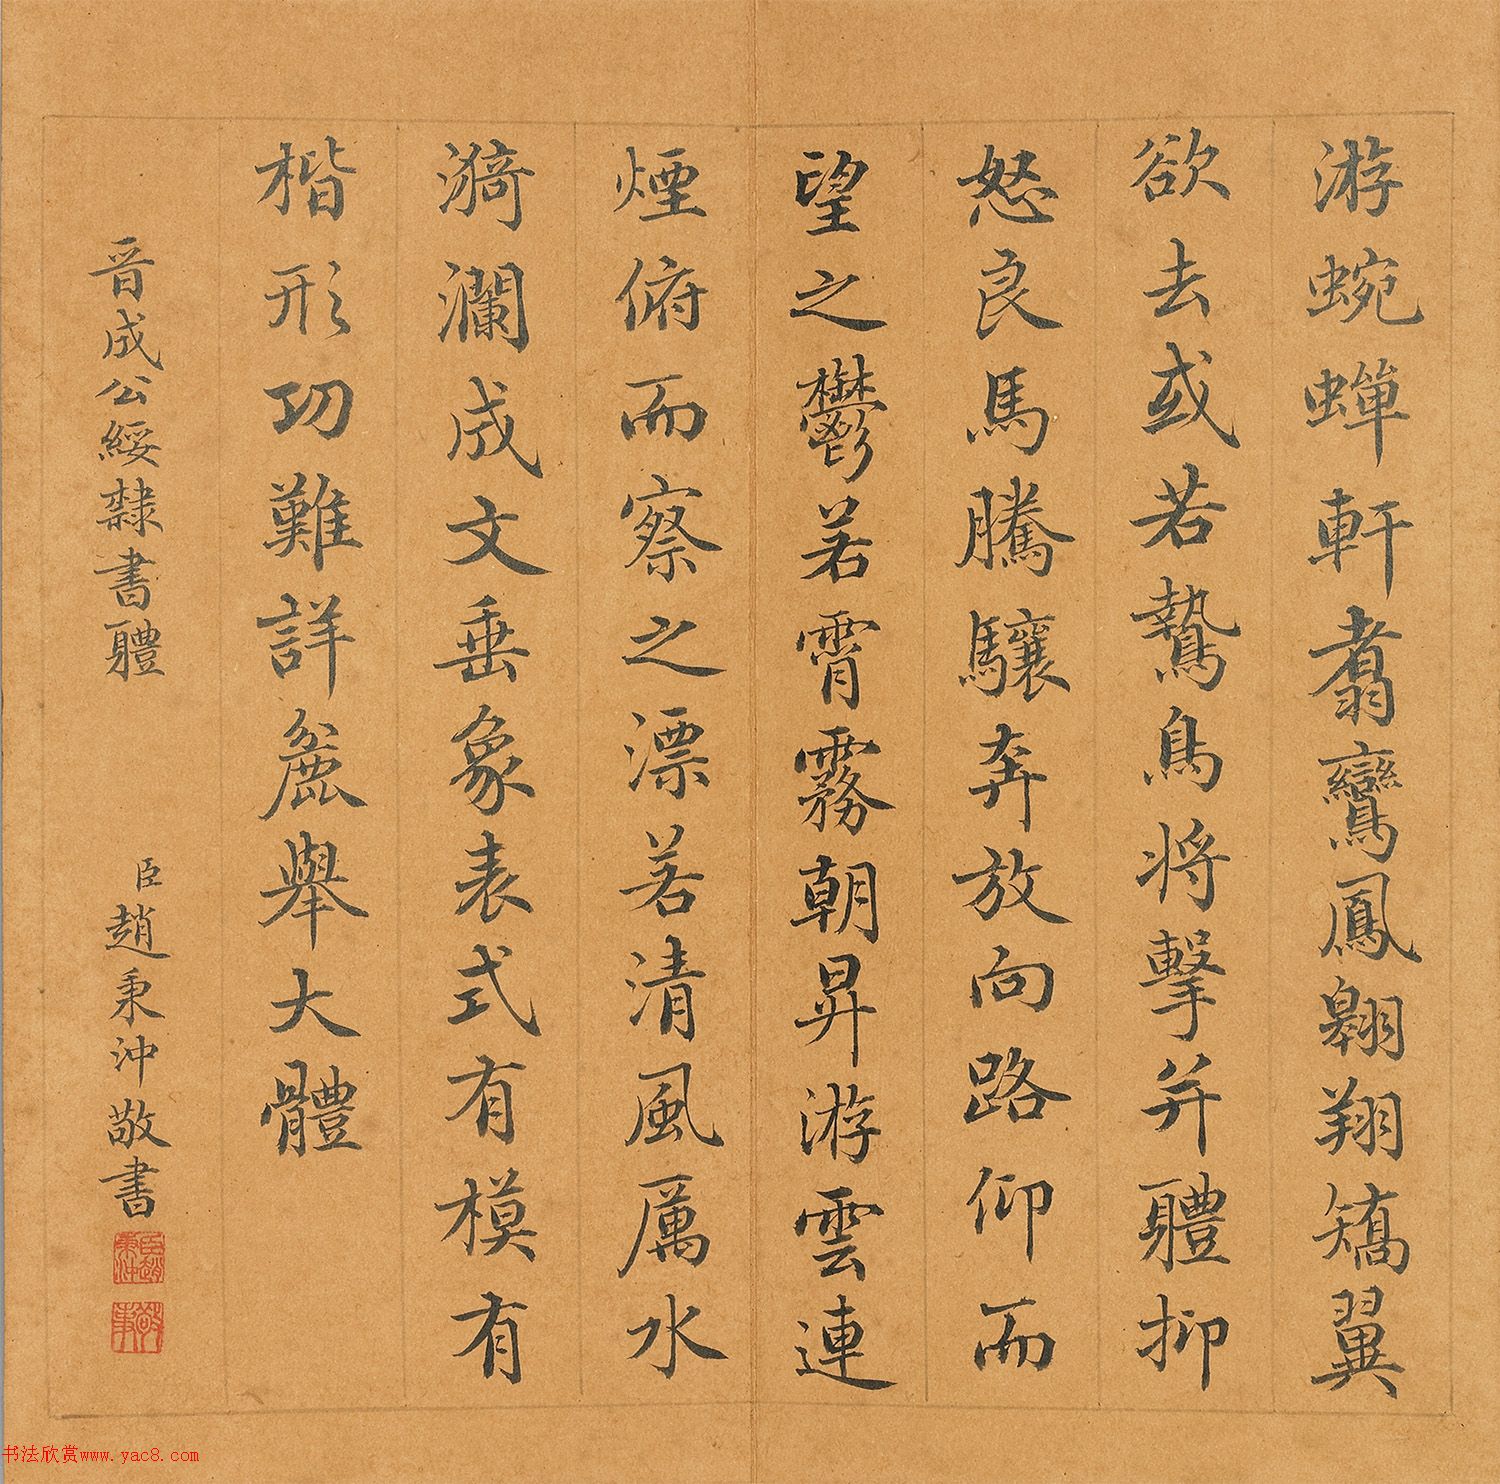 游蜿蟬軒翥鸞鳳翱翔矯翼
欲去或若鷙鳥将擊并軆抑
怒良馬騰驤奔放向路仰而
望之鬱若霄霧朝昇游雲連
煙俯而察之漂若清風厲水
漪瀾成文垂象表式有模有
楷形功難詳麁舉大體
晉成公綏隸書軆
臣趙秉沖敬書
臣趙秉沖
书法欣赏www.yac8.com